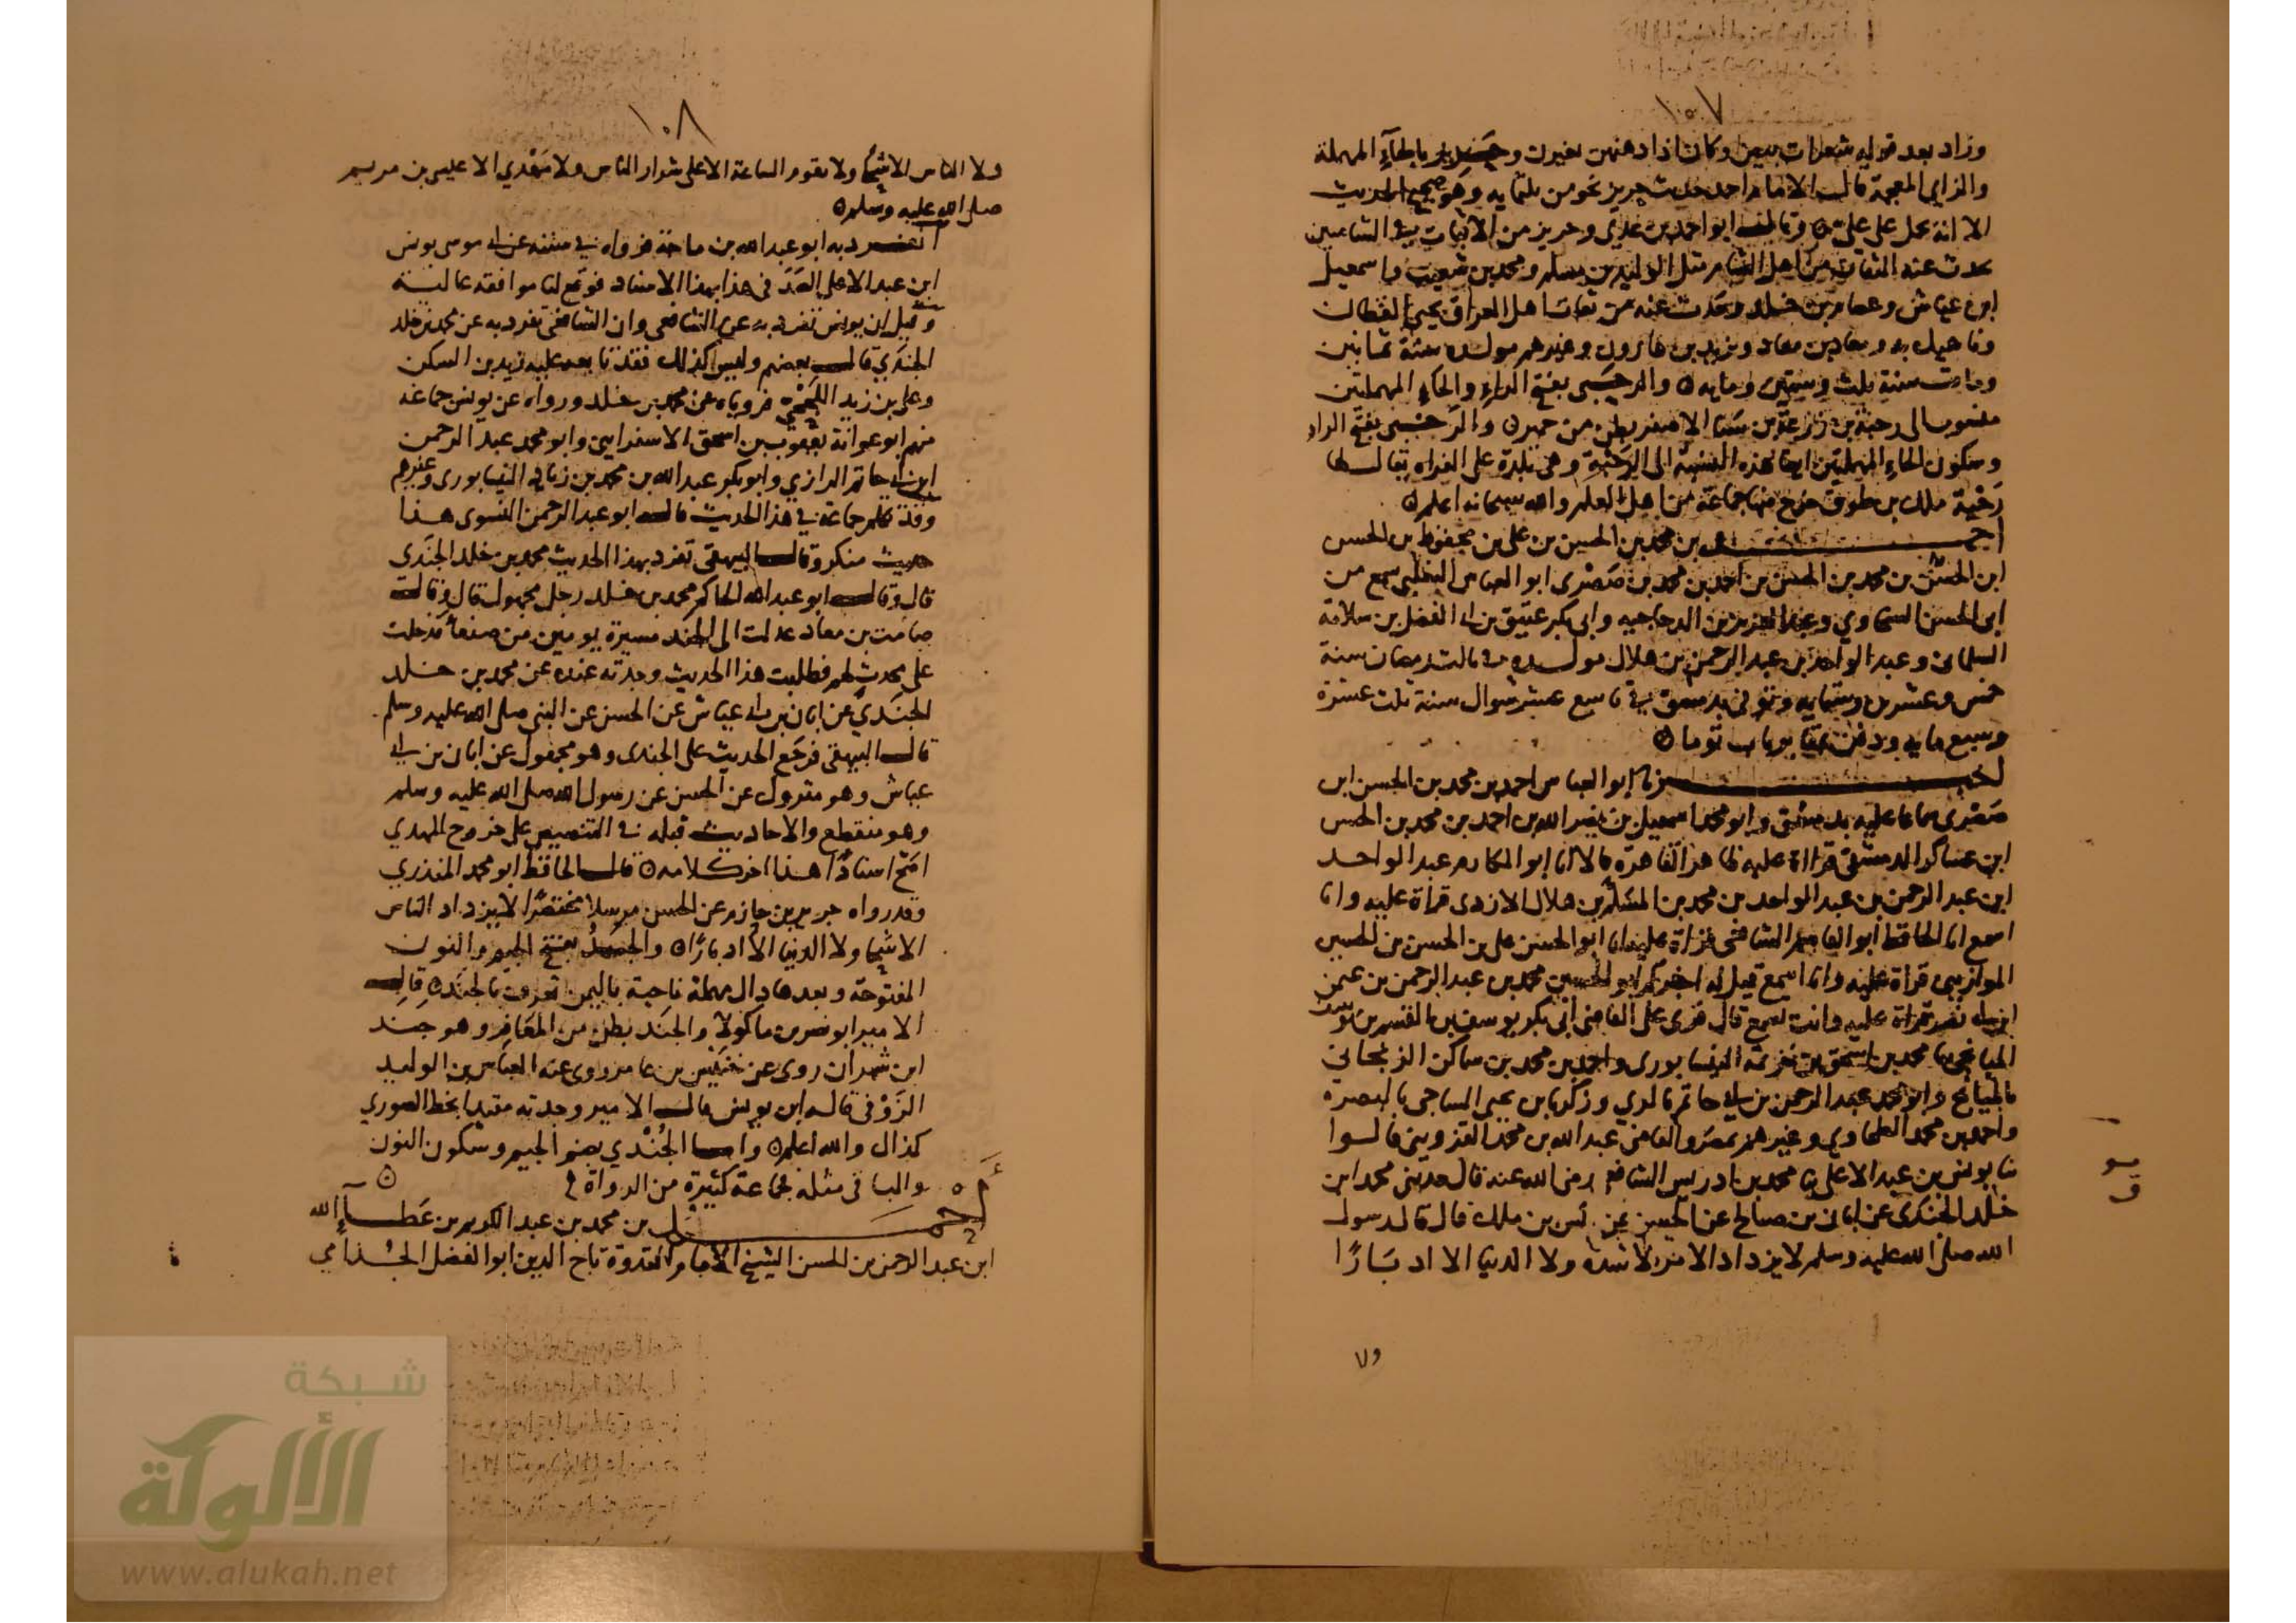 ١٠٧
وزاد بعد قوله شعرات بيض وكان اذا دهنهن تغيرن وحريز بالحآء المهملة
والزاي المعجمة قال الامام احمد حديث حريز نحو من ثلثمايه وهو صحيح الحديث
الا انه يحمل على علي ه وقال ابو احمد بن عدي وحريز من الاثبات في الشاميين
يحدث عنه الثقات من اهل الشام مثل الوليد بن مسلم ومحمد بن شعيب واسمعيل
ابن عياش وعصام بن خلد وحدث عنه من ثقات اهل العراق يحيى القطان
وناهيك به ومعاذ بن معاذ ويزيد بن هارون وغيرهم مولده سنة ثمانين
ومات سنة ثلث وستين ومايه ه والرحبي بفتح الراء والحاء المهملتين
منسوب الى رحبة بن زرعة بن سبا الاصغر بطن من حمير ه والرحبي بفتح الراء
وسكون الحاء المهملتين ايضا هذه النسبة الى الرحبة وهي بلدة على الفراه يقال لها
رحبة ملك بن طوق خرج منها جماعة من اهل العلم والله سبحانه اعلم ه
احمد بن محمد بن الحسين بن علي بن محفوظ بن الحسن
ابن الحسن بن محمد بن الحسن بن احمد بن محمد بن صصرى ابو العباس التغلبي سمع من
ابي الحسن السخاوي وعبد العزيز بن الدجاجيه وابي بكر عتيق بن ابي الفضل بن سلامة
السلماني وعبد الواحد بن عبد الرحمن بن هلال مولده في ثالث رمضان سنة
خمس وعشرين وستمايه وتوفي بدمشق في تاسع عشر شوال سنة ثلث عشرة
وسبع مايه ودفن بمقابر باب توما ه
اخبرنا ابو العباس احمد بن محمد بن الحسن ابن
صصرى سماعا عليه بدمشق وابو محمد اسمعيل بن نصر الله بن احمد بن محمد بن الحسن
ابن عساكر الدمشقي قراة عليه ظاهر القاهرة قالا انا ابو المكارم عبد الواحد
ابن عبد الرحمن بن عبد الواحد بن محمد بن المسلم بن هلال الازدي قراة عليه وانا
اسمع انا الحافظ ابو القاسم الشافعي قراة عليه انا ابو الحسن علي بن الحسن بن الحسين
الموازيني قراة عليه وانا اسمع قيل له اخبركم ابو الحسين محمد بن عبد الرحمن بن عثمن
ابن ابي نصر قراة عليه وانت تسمع قال قرئ على القاضي ابي بكر يوسف بن القسم بن يوسف
الميانجي نا محمد بن اسحق بن خزيمة النيسابوري واحمد بن محمد بن ساكن الزنجاني
بالميانج وابو محمد عبد الرحمن بن ابي حاتم بالري وزكريا بن يحيى الساجي بالبصرة
واحمد بن محمد الطحاوي وغيرهم بمصر والقاضي عبد الله بن محمد القزويني قالوا
نا يونس بن عبد الاعلى نا محمد بن ادريس الشافعي رضي الله عنه قال حدثني محمد ابن
خلد الجندي عن ابان بن صالح عن الحسن عن انس بن ملك قال قال رسول
الله صلى الله عليه وسلم لا يزداد الامر الا شدة ولا الدنيا الا ادبَارًا
ولا
١٠٨
ولا الناس الا شحا ولا تقوم الساعة الا على شرار الناس ولا مَهْدي الا عيسى بن مريم
صلى الله عليه وسلم ه
انفرد به ابو عبد الله بن ماجة فرواه في سننه عن ابي موسى يونس
ابن عبد الاعلى الصدفي هذا بهذا الاسناد فوقع لنا موافقه عالية
وقيل ان يونس تفرد به عن الشافعي وان الشافعي تفرد به عن محمد بن خلد
الجندي قال بعضهم وليس كذلك فقد تابعه عليه زيد بن السكن
وعلي بن زيد اللحجي فروياه عن محمد بن خلد ورواه عن يونس جماعة
منهم ابو عوانة يعقوب بن اسحق الاسفرايني وابو محمد عبد الرحمن
ابن ابي حاتم الرازي وابو بكر عبد الله بن محمد بن زياد النيسابوري وغيرهم
وقد تكلم جماعة في هذا الحديث قال ابو عبد الرحمن النسوي هذا
حديث منكر وقال البيهقي تفرد بهذا الحديث محمد بن خلد الجندي
قال وقال ابو عبد الله الحاكم محمد بن خلد رجل مجهول قال وقال
صامت بن معاذ عدلت الى الجند مسيرة يومين من صنعا فدخلت
على محدث لهم فطلبت هذا الحديث وجدته عنده عن محمد بن خلد
الجندي عن ابان بن ابي عياش عن الحسن عن النبي صلى الله عليه وسلم
قال البيهقي فرجع الحديث على الجندي وهو مجهول عن ابان بن ابي
عياش وهو متروك عن الحسن عن رسول الله صلى الله عليه وسلم
وهو منقطع والاحاديث قبله في التنصيص على خروج المهدي
اصح اسنادًا هذا اخر كلامه ه قال الحافظ ابو محمد المنذري
وقد رواه جرير بن حازم عن الحسن مرسلا مختصرًا لا يزداد الناس
الا شحا ولا الدنيا الا ادبارًا ه والجندُ بفتح الجيم والنون
المفتوحة وبعدها دال مهملة ناحية باليمن تعرف بالجند ه قال
الامير ابو نصر بن ماكولا والجند بطن من المعَافِر وهو جند
ابن شهران روى عن بن عامر روى عنه العباس بن الوليد
الزَوْفي قاله ابن يونس قال الامير وجدته مقيدا بخط الصوري
كذاك والله اعلم ه واما الجُنْدي بضم الجيم وسكون النون
والباقي مثله فجماعة كثيرة من الرواة ه
احمد بن محمد بن عبد الكريم بن عَطَآءِ الله
ابن عبد الرحمن بن الحسن الشيخ الامام القدوة تاج الدين ابو الفضل الجُذامي
شبكة
الألوكة
www.alukah.net